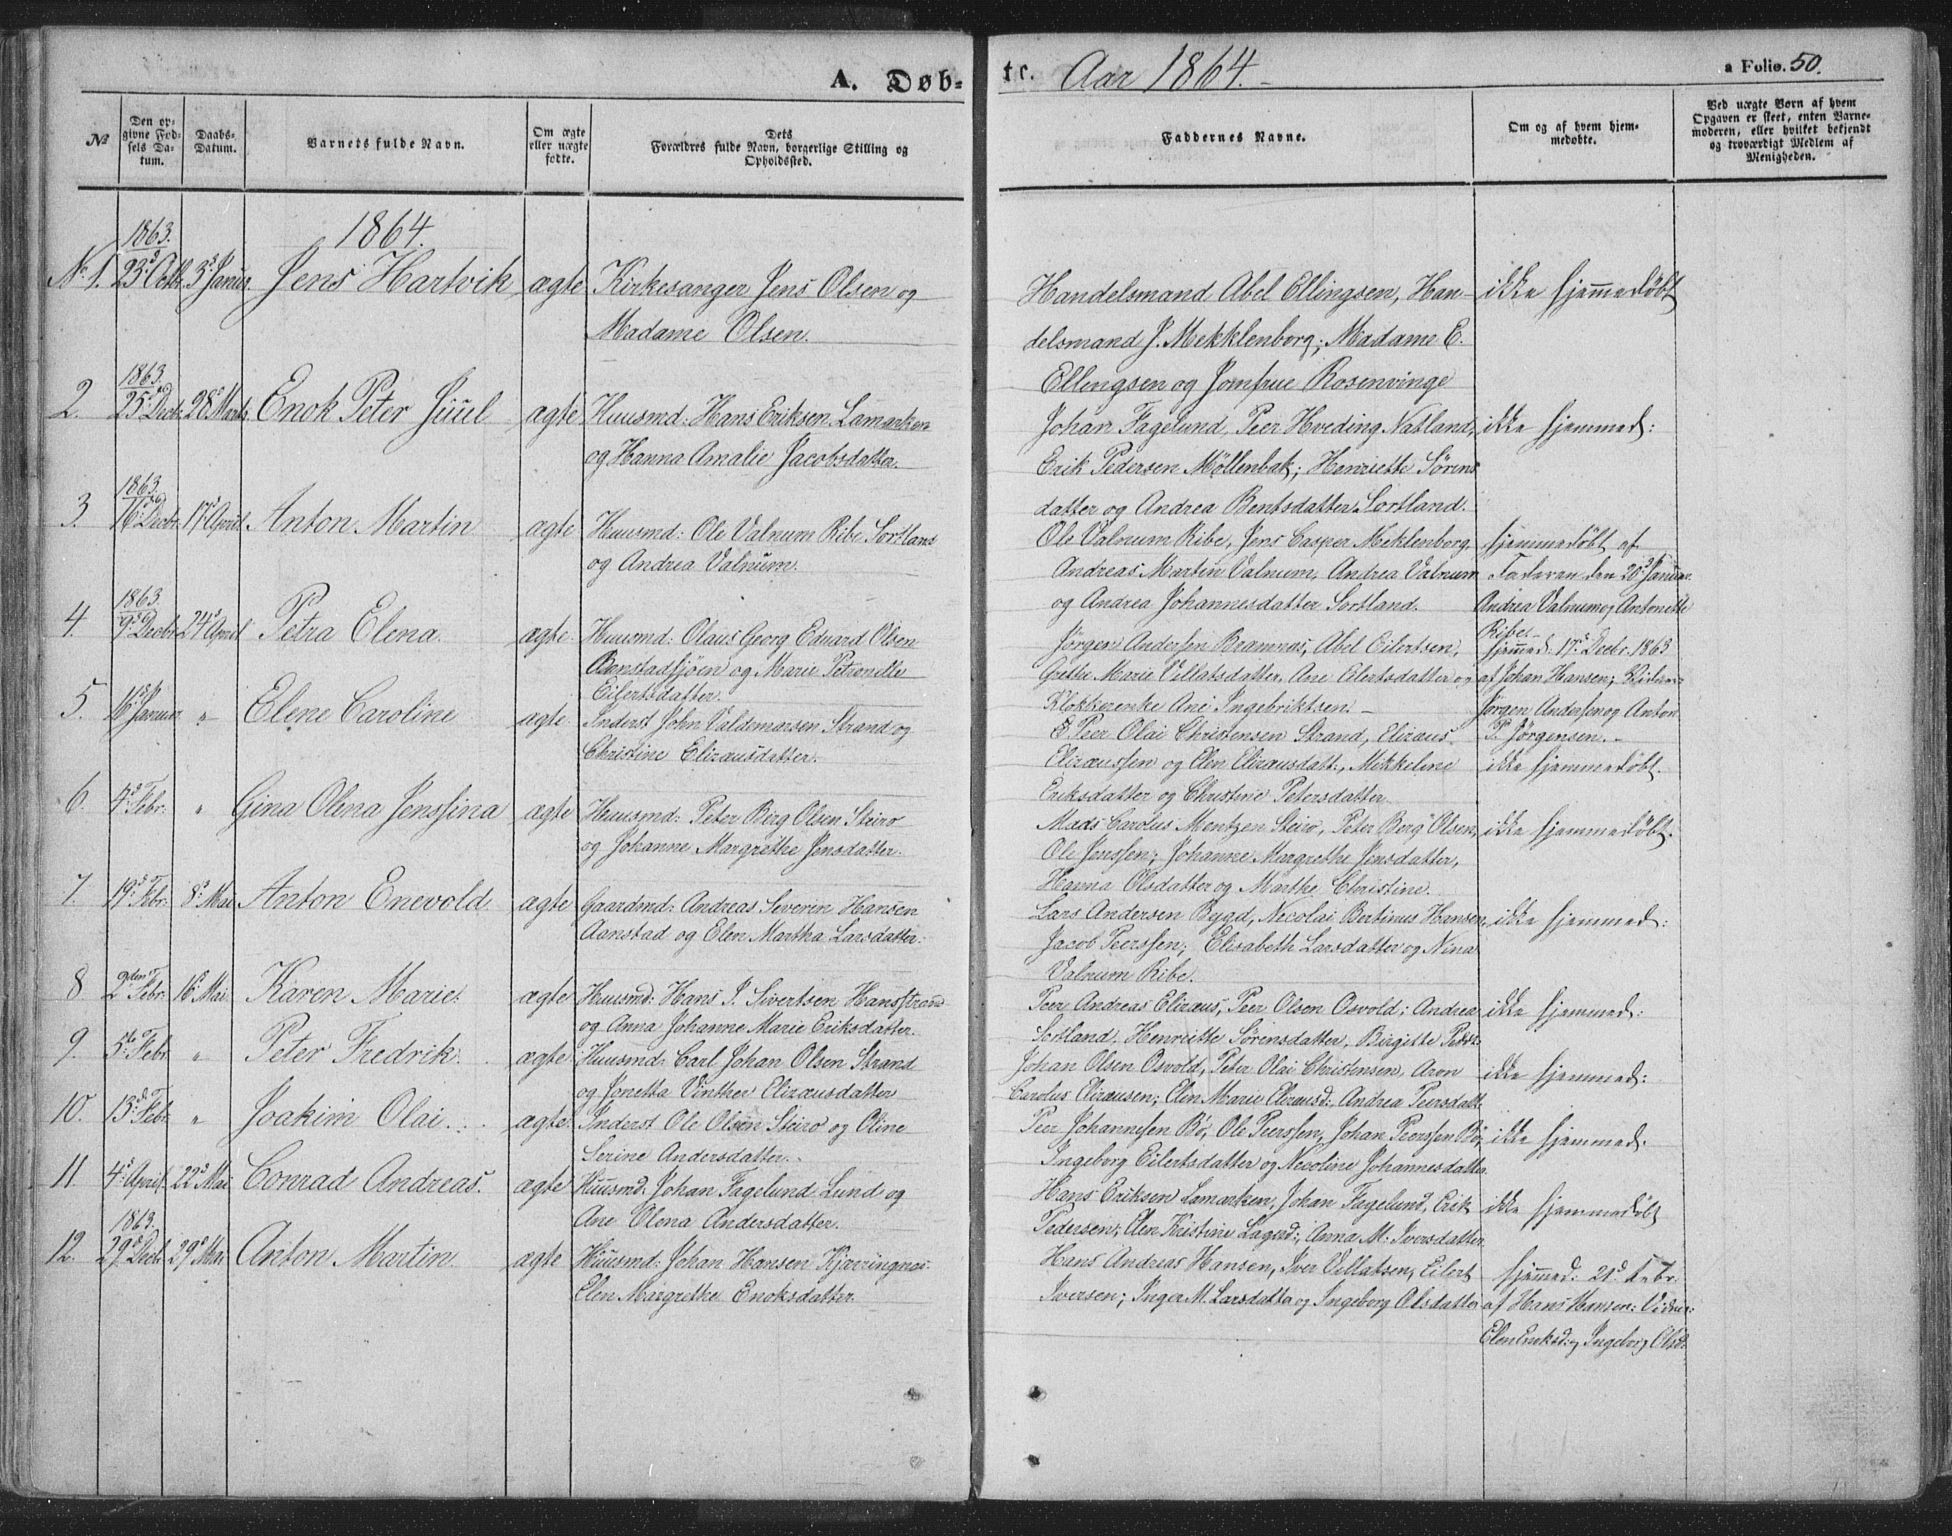 A. Døb-
te. Aar 1864.-
a Folio. 50.
No
Den op-
givne Fød-
sels Da-
tum.
Daabs-
Datum.
Barnets fulde Navn.
Om ægte
eller uægte
fødte.
Dets
Forældres fulde Navn, borgerlige Stilling og
Opholdssted.
Faddernes Navne.
Om og af hvem hjem-
medøbte.
Ved uægte Børn af hvem
Opgaven er skeet, enten Barne-
moderen, eller hvilket bekjendt
og troværdigt Medlem af
Menigheden.
1863. 1864.
No 1. 23d Octb. 3d Januar Jens Hartvik ægte Kirkesanger Jens Olsen og
Madame Olsen.
Handelsmand Abel Ellingsen, Han-
delsmand J. Mekklenborg; Madame E.
Ellengsen og Jomfrue Rosenvinge
ikke hjemmedøbt
1863
2. 25d Decbr. 28d Marts. Enok Peter Juul ægte Huusmd: Hans Eriksen Lamarken
og Hanna Amalie Jacobsdatter.
Johan Fagelund, Peer Hveding Natland,
Erik Pedersen Møllenbak; Henriette Sørens
datter og Andrea Bentsdatter Sortland.
ikke hjemmed:
1863.
3. 16d Decbr. 17d April Anton Martin ægte Huusmd: Ole Valnum Ribe Sortland
og Andrea Valnum.
Ole Valnum Ribe, Jens Casper Meklenborg.
Andreas Martin Valnum, Andrea Valnum
og Andrea Johannesdatter Sortland.
hjemmedøbt af
Faderen den 20d Januar.
Andrea Valnum og Antonette
Ribe.
1863
4. 9d Decbr 24d April Petra Elena. ægte Huusmd: Olaus Georg Eduard Olsen
Aanstadsjøen og Marie Petronelle
Eilertsdatter.
Jørgen Andersen Bramnæs, Abel Eilertsen,
Grethe Marie Villatsdatter. Ane Eilertsdatter og
Klokkerenke Ane Ingebriktsen -
hjemmed: 17d Decbr. 1863
af Johan Hansen;
Jørgen Andersen og Anton
P. Jørgensen.
5. 16d Januar " Elene Caroline ægte Inderst John Valdmarsen Strand og
Christine Elizæusdatter.
Peer Olai Christensen Strand, Elizæus
Elizæussen og Elen Elizæusdatt., Mikkeline
Eriksdatter og Christine Petersdatter
ikke hjemmedøbt.
6. 4d Febr: " Gina Olena Jenssina ægte Huusmd: Peter Berg Olsen Steiro
og Johanne Margrethe Jensdatter.
Mads Carolus Mentzen Steiro, Peter Berg Olsen,
Ole Jenssen; Johanne Margrethe Jensdatter,
Hanna Olsdatter og Marthe Christine.
ikke hjemmedøbt.
7. 19d Febr: 8d Mai Anton Enevold ægte Gaardmd: Andreas Severin Hansen
Aanstad og Elen Martha Larsdatter.
Lars Andersen Bygd, Necolai Bertinus Hansen,
Jacob Peerssen; Elisabeth Larsdatter og Nina
Valnum Ribe.
ikke hjemmed:
8 2den Febr. 16d Mai Karen Marie. ægte Huusmd: Hans J. Sivertsen Hansstrand
og Anna Johanne Marie Eriksdatter.
Peer Andreas Elizæus, Peer Olsen Osvold; Andrea
Sortland, Henriette Sørensdatter, Birgitte Pettr.
ikke hjemmed:
9. 5te Febr. " Peter Fredrik. ægte Huusmd: Carl Johan Olsen Strand
og Jonetta Vinther Elizæusdatter
Johan Olsen Osvold, Peter Olai Christensen, Aron
Carolus Elizæusen; Elen Marie Elizæusd: Andrea Peersdatt.
ikke hjemmed:
10. 13d Febr. " Joakim Olai. ægte. Inderst Ole Olsen Steiro og Oline
Serine Andersdatter.
Peer Johannesen Bø, Ole Peerssen, Johan Peerssen Bø,
Ingeborg Eilertsdatter og Necoline Johannesdatter
ikke hjemmed.
11 4d April. 22d Mai Conrad Andreas. ægte Huusmd: Johan Fagelund Lund og
Ane Olena Andersdatter.
Hans Eriksen Lamarken, Johan Fagelund, Erik
Pedersen; Elen Kristine Lagesd:, Anna M. Iversdatter
ikke hjemmedøbt
1863.
12. 29d Decbr. 29d Mai Anton Martin. ægte Huusmd: Johan Hansen Kjærringnæs
Elen Margrethe Enoksdatter
Hans Andreas Hansen, Iver Villatsen, Eilert
Iversen; Inger M. Larsdatter og Ingeborg Olsdatter
hjemmed: 21d Febr.
af Hans Hansen: Vidner:
Elen Enoksd: og Ingeborg Olsd: